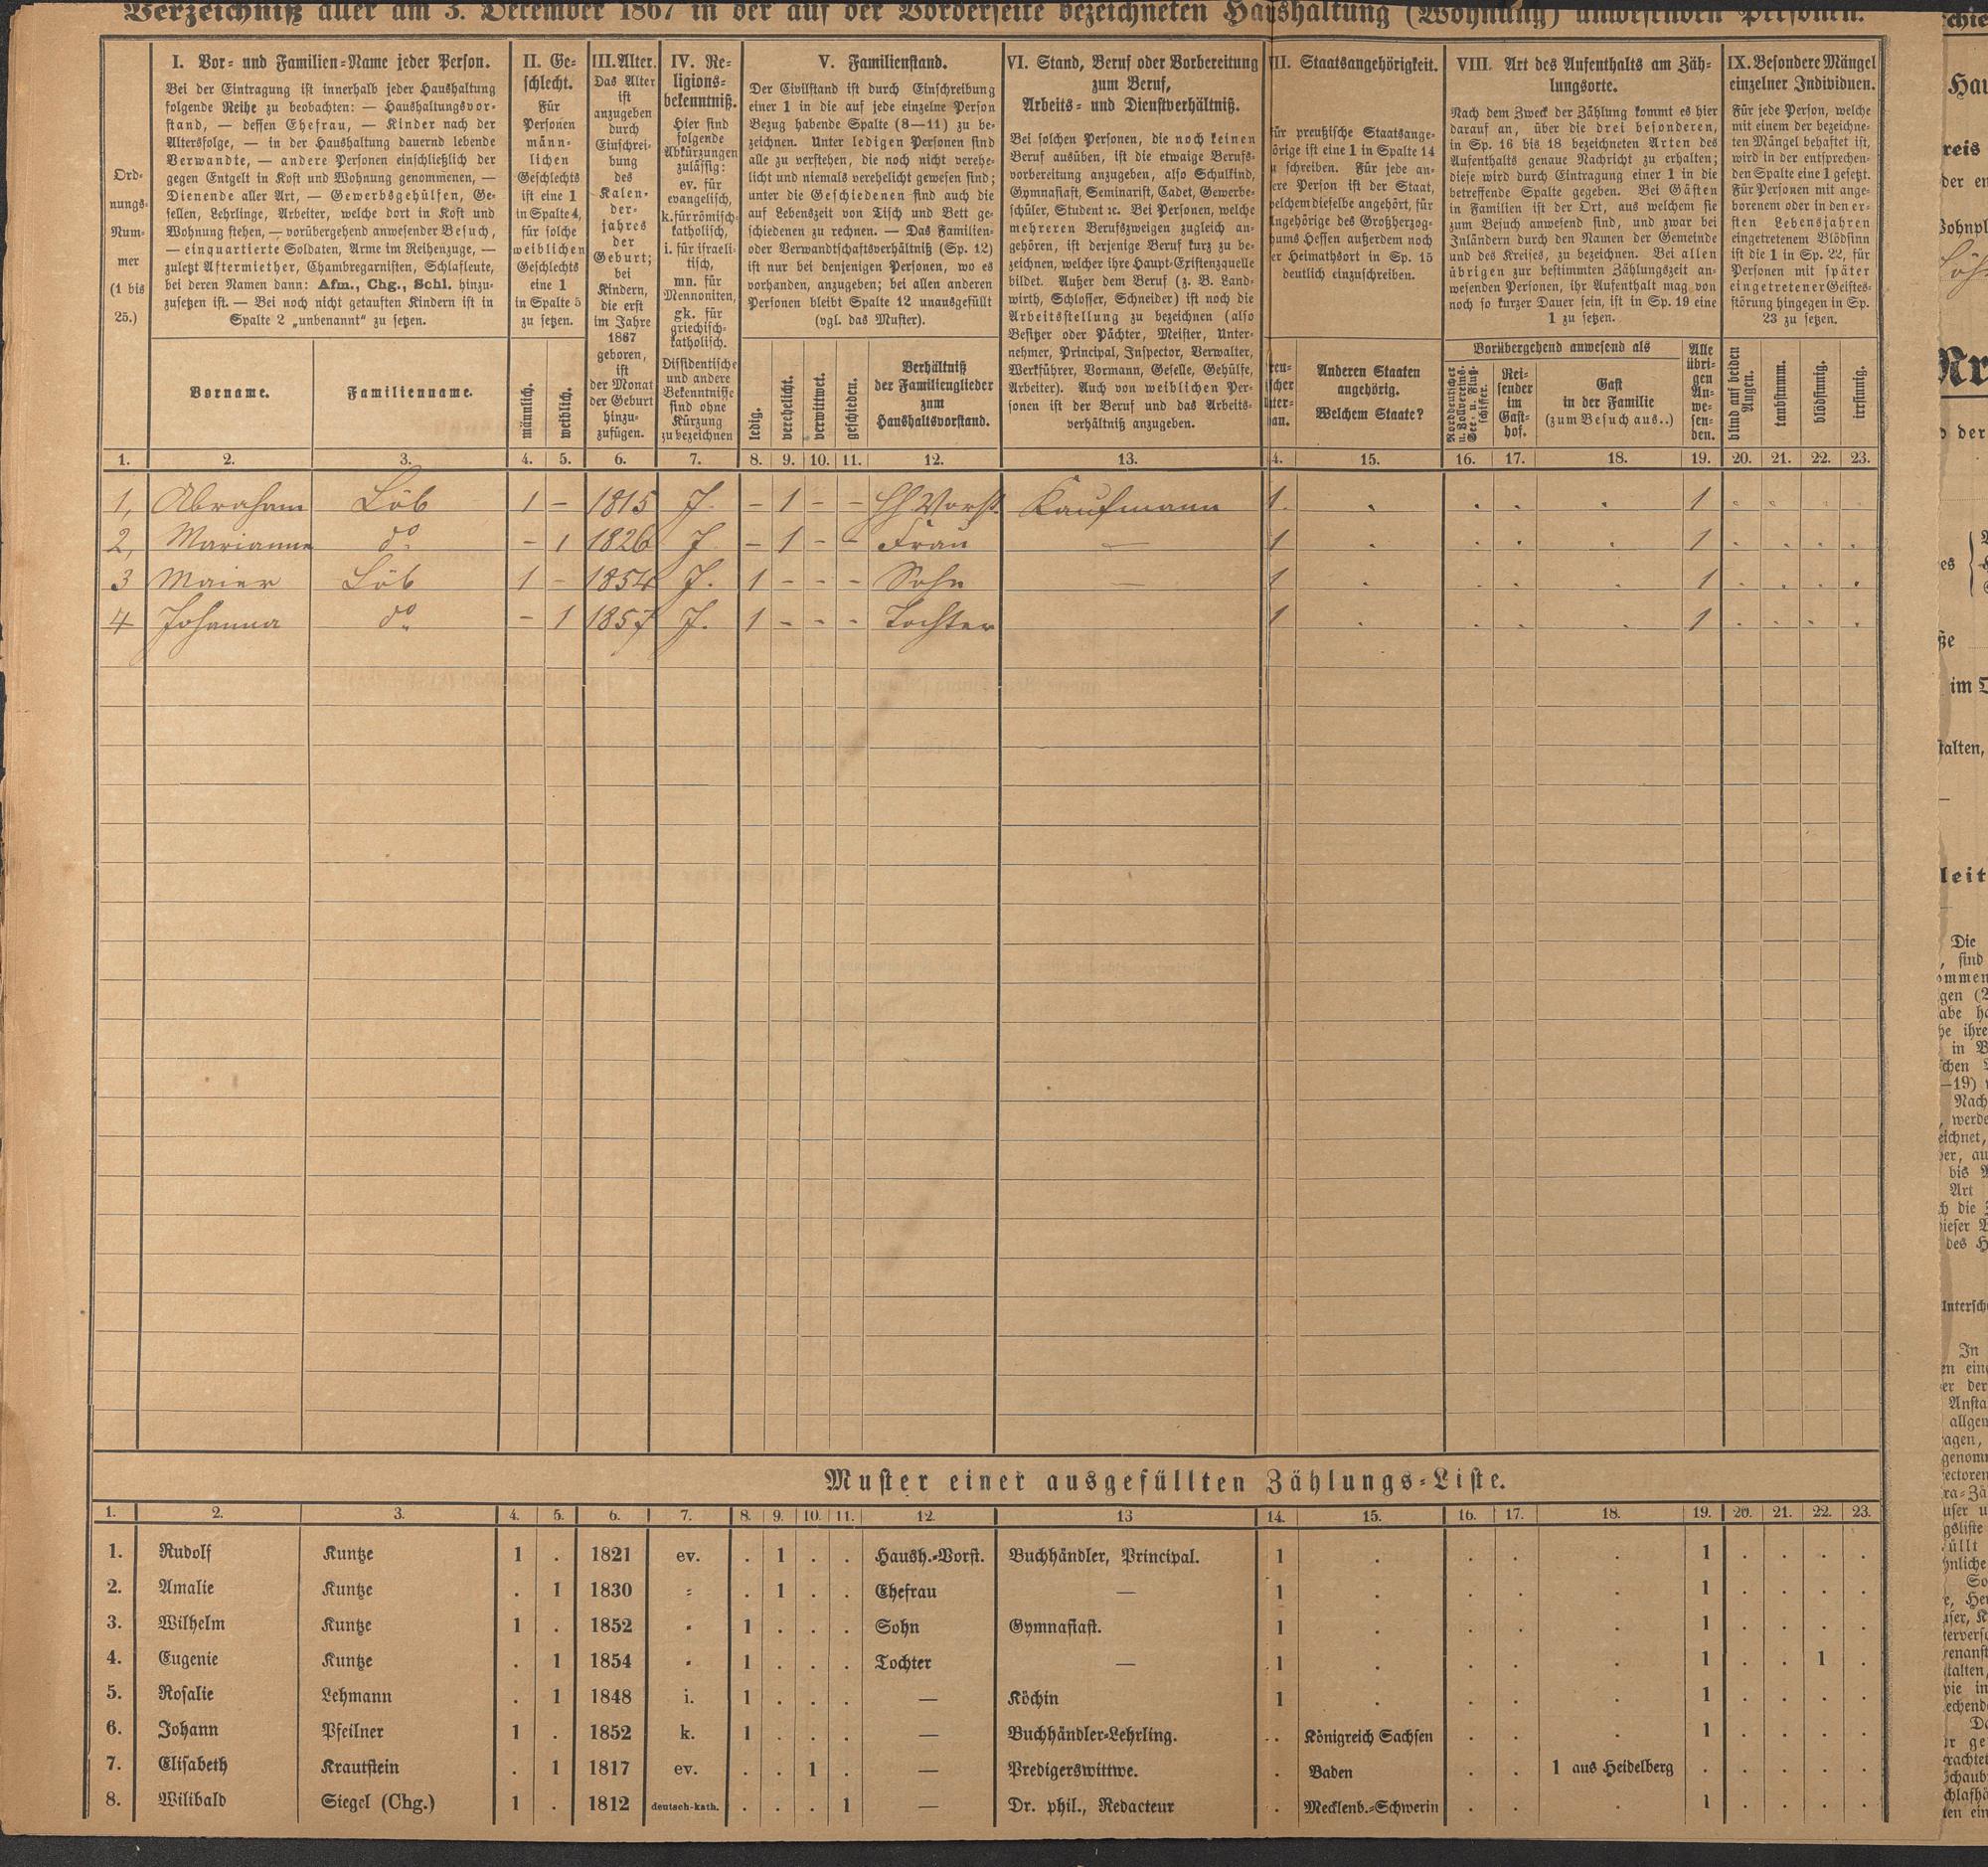 Verzeichniß aller am 3. December 1867 in der auf der Vorderseite bezeichneten Haushaltung (Wohnung) anwesenden Personen.
Ord-
nungs-
Num-
mer
(1 bis
25.)
I. Vor- und Familien-Name jeder Person.
Bei der Eintragung ist innerhalb jeder Haushaltung
folgende Reihe zu beobachten: — Haushaltungsvor-
stand, — dessen Ehefrau, — Kinder nach der
Altersfolge, — in der Haushaltung dauernd lebende
Verwandte, — andere Personen einschließlich der
gegen Entgelt in Kost und Wohnung genommenen, —
Dienende aller Art, — Gewerbsgehülfen, Ge-
sellen, Lehrlinge, Arbeiter, welche dort in Kost und
Wohnung stehen, — vorübergehend anwesender Besuch,
— einquartierte Soldaten, Arme im Reihenzuge, —
zuletzt Aftermiether, Chambregarnisten, Schlafleute,
bei deren Namen dann: Afm., Chg., Schl. hinzu-
zusetzen ist. — Bei noch nicht getauften Kindern ist in
Spalte 2 „unbenannt“ zu setzen.
Vorname.
Familienname.
II. Ge-
schlecht.
Für
Personen
männ-
lichen
Geschlechts
ist eine 1
in Spalte 4,
für solche
weiblichen
Geschlechts
eine 1
in Spalte 5
zu setzen.
männlich.
weiblich.
III. Alter.
Das Alter
ist
anzugeben
durch
Einschrei-
bung
des
Kalen-
der-
jahres
der
Geburt;
bei
Kindern,
die erst
im Jahre
1867
geboren,
ist
der Monat
der Geburt
hinzu-
zufügen.
IV. Re-
ligions-
bekenntniß.
Hier sind
folgende
Abkürzungen
zulässig:
ev. für
evangelisch,
k. für römisch-
katholisch,
i. für israeli-
tisch,
mn. für
Mennoniten,
gk. für
griechisch-
katholisch.
Dissidentische
und andere
Bekenntnisse
sind ohne
Kürzung
zu bezeichnen
V. Familienstand.
Der Civilstand ist durch Einschreibung
einer 1 in die auf jede einzelne Person
Bezug habende Spalte (8—11) zu be-
zeichnen. Unter ledigen Personen sind
alle zu verstehen, die noch nicht verehe-
licht und niemals verehelicht gewesen sind;
unter die Geschiedenen sind auch die
auf Lebenszeit von Tisch und Bett ge-
schiedenen zu rechnen. — Das Familien-
oder Verwandtschaftsverhältniß (Sp. 12)
ist nur bei denjenigen Personen, wo es
vorhanden, anzugeben; bei allen anderen
Personen bleibt Spalte 12 unausgefüllt
(vgl. das Muster).
ledig.
verehelicht.
verwittwet.
geschieden.
Verhältniß
der Familienglieder
zum
Haushaltsvorstand.
VI. Stand, Beruf oder Vorbereitung
zum Beruf,
Arbeits- und Dienstverhältniß.
Bei solchen Personen, die noch keinen
Beruf ausüben, ist die etwaige Berufs-
vorbereitung anzugeben, also Schulkind,
Gymnasiast, Seminarist, Cadet, Gewerbe-
schüler, Student ꝛc. Bei Personen, welche
mehreren Berufszweigen zugleich an-
gehören, ist derjenige Beruf kurz zu be-
zeichnen, welcher ihre Haupt-Existenzquelle
bildet. Außer dem Beruf (z. B. Land-
wirth, Schlosser, Schneider) ist noch die
Arbeitsstellung zu bezeichnen (also
Besitzer oder Pächter, Meister, Unter-
nehmer, Principal, Inspector, Verwalter,
Werkführer, Vormann, Geselle, Gehülfe,
Arbeiter). Auch von weiblichen Per-
sonen ist der Beruf und das Arbeits-
verhältniß anzugeben.
II. Staatsangehörigkeit.
für preußische Staatsange-
örige ist eine 1 in Spalte 14
u schreiben. Für jede an-
ere Person ist der Staat,
welchem dieselbe angehört, für
Angehörige des Großherzog-
hums Hessen außerdem noch
er Heimathsort in Sp. 15
deutlich einzuschreiben.
ren-
ischer
nter-
han.
Anderen Staaten
angehörig.
Welchem Staate?
VIII. Art des Aufenthalts am Zäh-
lungsorte.
Nach dem Zweck der Zählung kommt es hier
darauf an, über die drei besonderen,
in Sp. 16 bis 18 bezeichneten Arten des
Aufenthalts genaue Nachricht zu erhalten;
diese wird durch Eintragung einer 1 in die
betreffende Spalte gegeben. Bei Gästen
in Familien ist der Ort, aus welchem sie
zum Besuch anwesend sind, und zwar bei
Inländern durch den Namen der Gemeinde
und des Kreises, zu bezeichnen. Bei allen
übrigen zur bestimmten Zählungszeit an-
wesenden Personen, ihr Aufenthalt mag von
noch so kurzer Dauer sein, ist in Sp. 19 eine
1 zu setzen.
Vorübergehend anwesend als
Norddeutscher
u. Zollvereins-
See- u. Fluß-
schiffer.
Rei-
sender
im
Gast-
hof.
Gast
in der Familie
(zum Besuch aus..)
Alle
übri-
gen
An-
we-
sen-
den.
IX. Besondere Mängel
einzelner Individuen.
Für jede Person, welche
mit einem der bezeichne-
ten Mängel behaftet ist,
wird in der entsprechen-
den Spalte eine 1 gesetzt.
Für Personen mit ange-
borenem oder in den er-
sten Lebensjahren
eingetretenem Blödsinn
ist die 1 in Sp. 22, für
Personen mit später
eingetretener Geistes-
störung hingegen in Sp.
23 zu setzen.
blind auf beiden
Augen.
taubstumm.
blödsinnig.
irrsinnig.
1. 2. 3. 4. 5. 6. 7. 8. 9. 10. 11. 12. 13. 4. 15. 16. 17. 18. 19. 20. 21. 22. 23.
1, Abraham Löb 1 – 1815 J. – 1 – – HH Vorst. Kaufmann 1. . . . . 1 . . . .
2, Marianne do – 1 1826 J – 1 – – Frau — 1 . . . . 1 . . . .
3 Maier Löb 1 – 1854 J. 1 – – – Sohn — 1 . . . . 1 . . . .
4 Johanna do – 1 1857 J. 1 – – – Tochter 1 . . . . 1 . . . .
Muster einer ausgefüllten Zählungs-Liste.
1. 2. 3. 4. 5. 6. 7. 8. 9. 10. 11. 12. 13 14. 15. 16. 17. 18. 19. 20. 21. 22. 23.
1. Rudolf Kuntze 1 . 1821 ev. . 1 . . Haush.-Vorst. Buchhändler, Principal. 1 . . . . 1 . . . .
2. Amalie Kuntze . 1 1830 „ . 1 . . Ehefrau — 1 . . . . 1 . . . .
3. Wilhelm Kuntze 1 . 1852 „ 1 . . . Sohn Gymnasiast. 1 . . . . 1 . . . .
4. Eugenie Kuntze . 1 1854 „ 1 . . . Tochter — 1 . . . . 1 . . 1 .
5. Rosalie Lehmann . 1 1848 i. 1 . . . — Köchin 1 . . . . 1 . . . .
6. Johann Pfeilner 1 . 1852 k. 1 . . . — Buchhändler-Lehrling. . Königreich Sachsen . . . 1 . . . .
7. Elisabeth Krautstein . 1 1817 ev. . . 1 . — Predigerswittwe. . Baden . . 1 aus Heidelberg . . . . .
8. Wilibald Siegel (Chg.) 1 . 1812 deutsch-kath. . . . 1 — Dr. phil., Redacteur . Mecklenb.-Schwerin . . . 1 . . . .